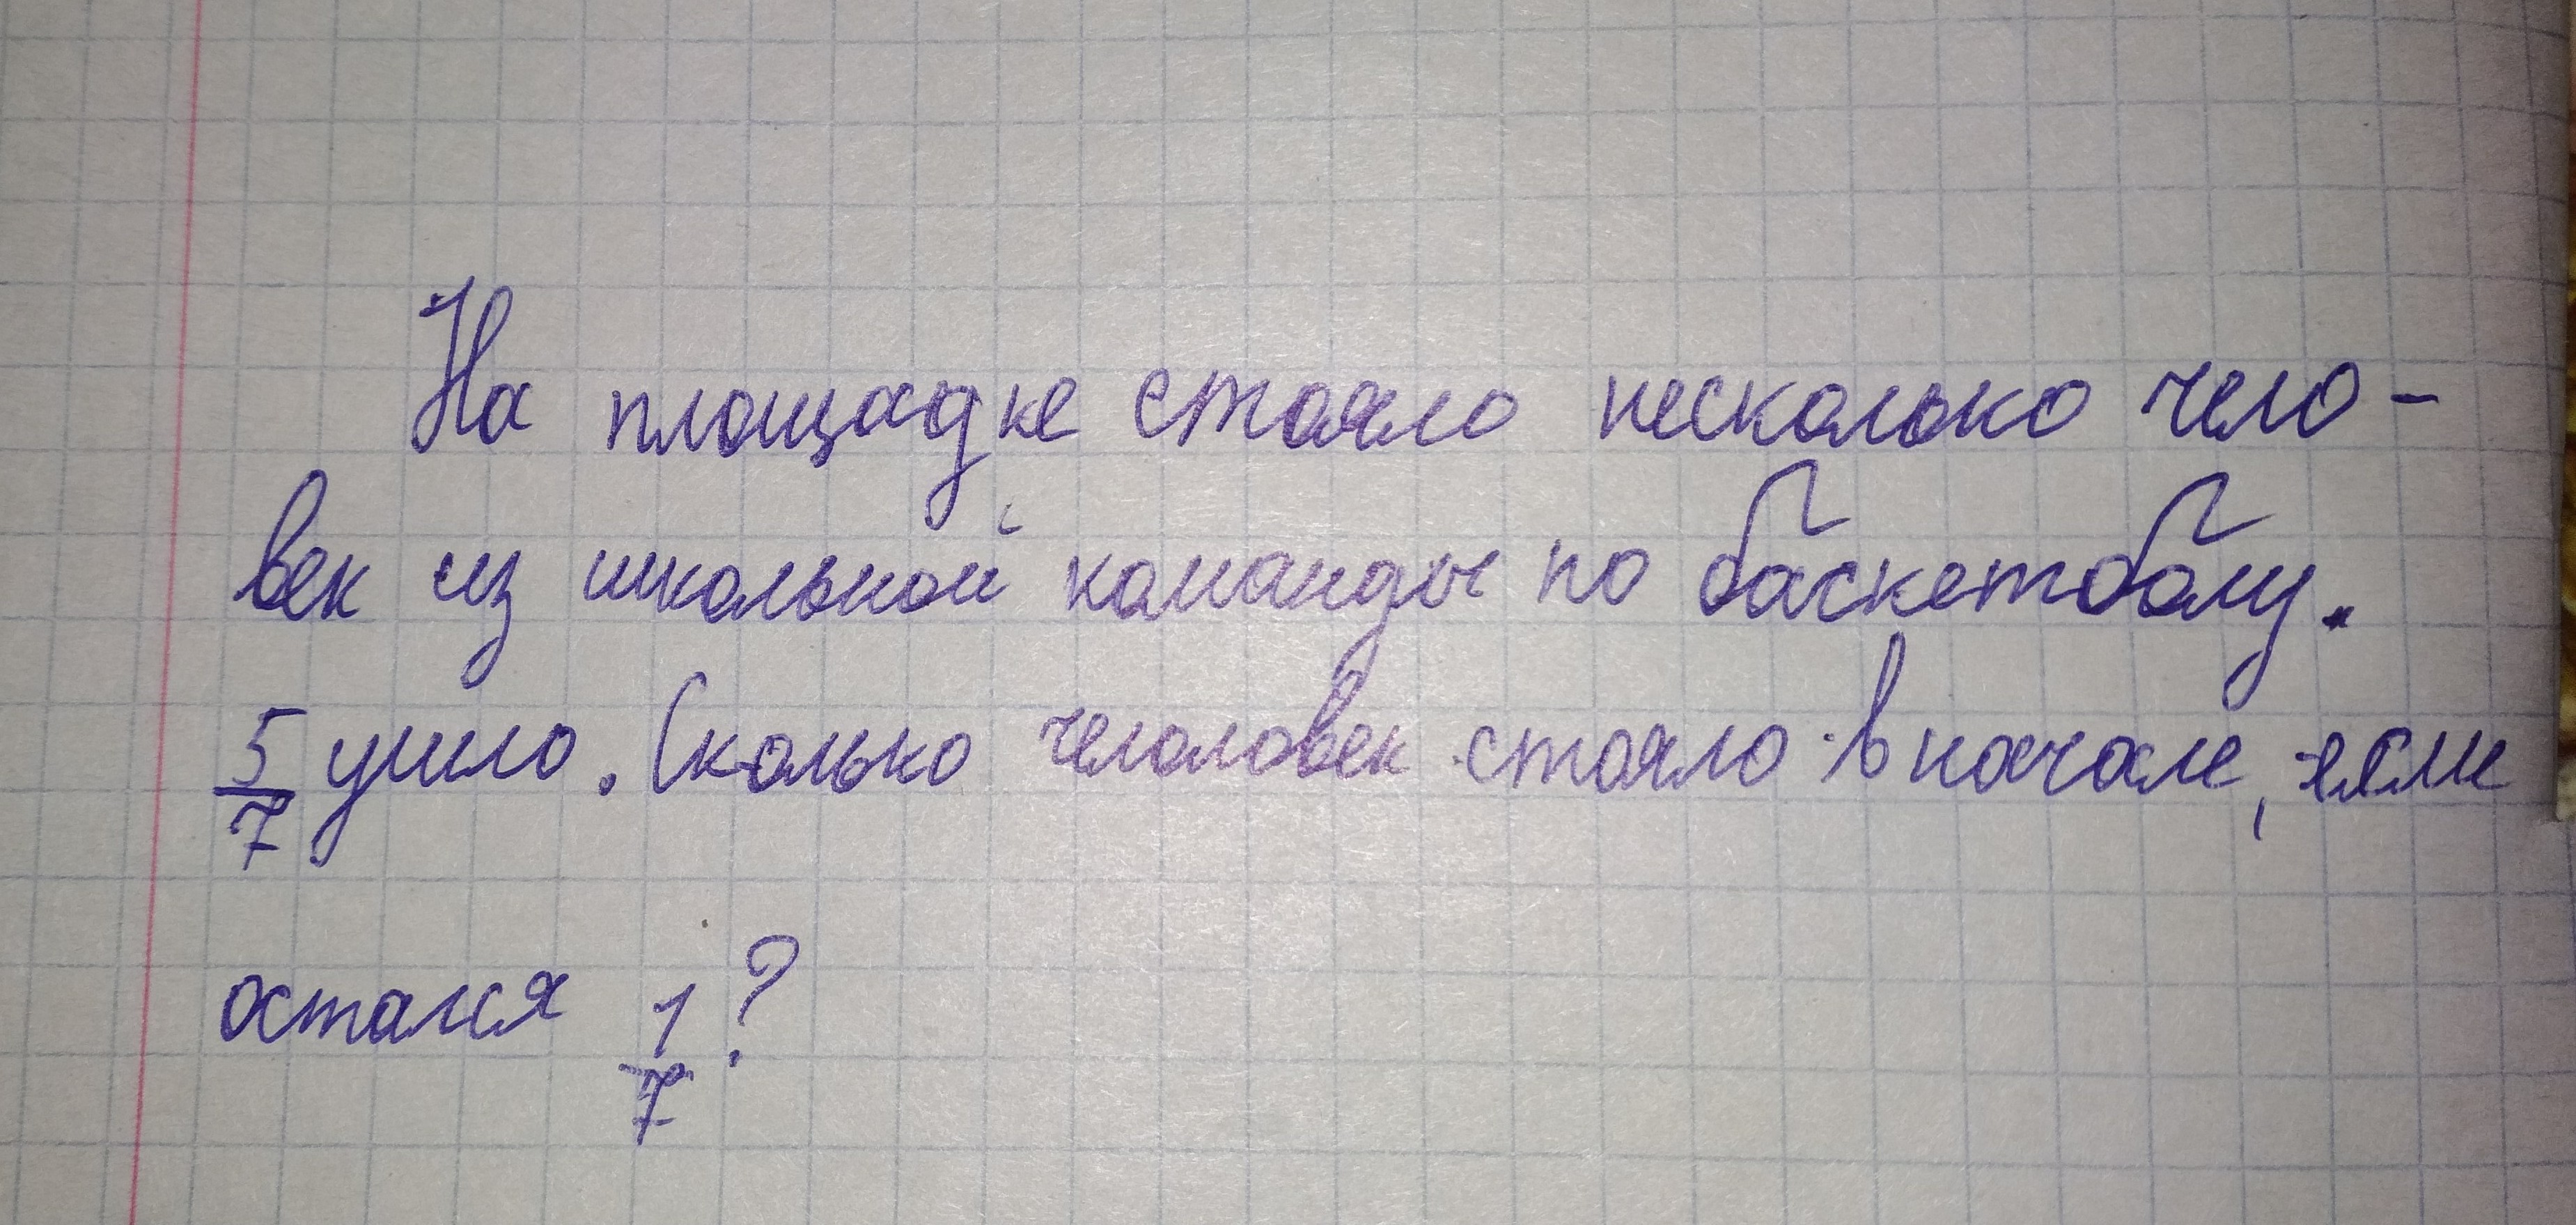 На площадке стояло несколько чело-
век из школьной команды по баскетболу.
5/7 ушло. Сколько человек стояло вначале, если
остался 1/7?